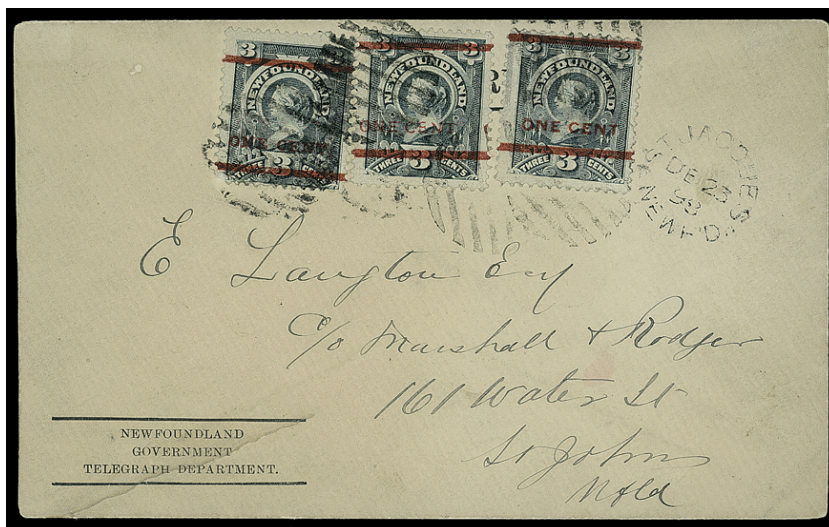 3 3
NEWFOUNDLAND
ONE CENT
THREE 3 CENTS
3 3
NEWFOUNDLAND
ONE CENT
THREE 3 CENTS
3 3
NEWFOUNDLAND
ONE CENT
THREE 3 CENTS
DE 23
98
NEWF'D
E Langton Esq
c/o Marshall & Rodger
161 Water St
St Johns
Nfld
NEWFOUNDLAND
GOVERNMENT
TELEGRAPH DEPARTMENT.